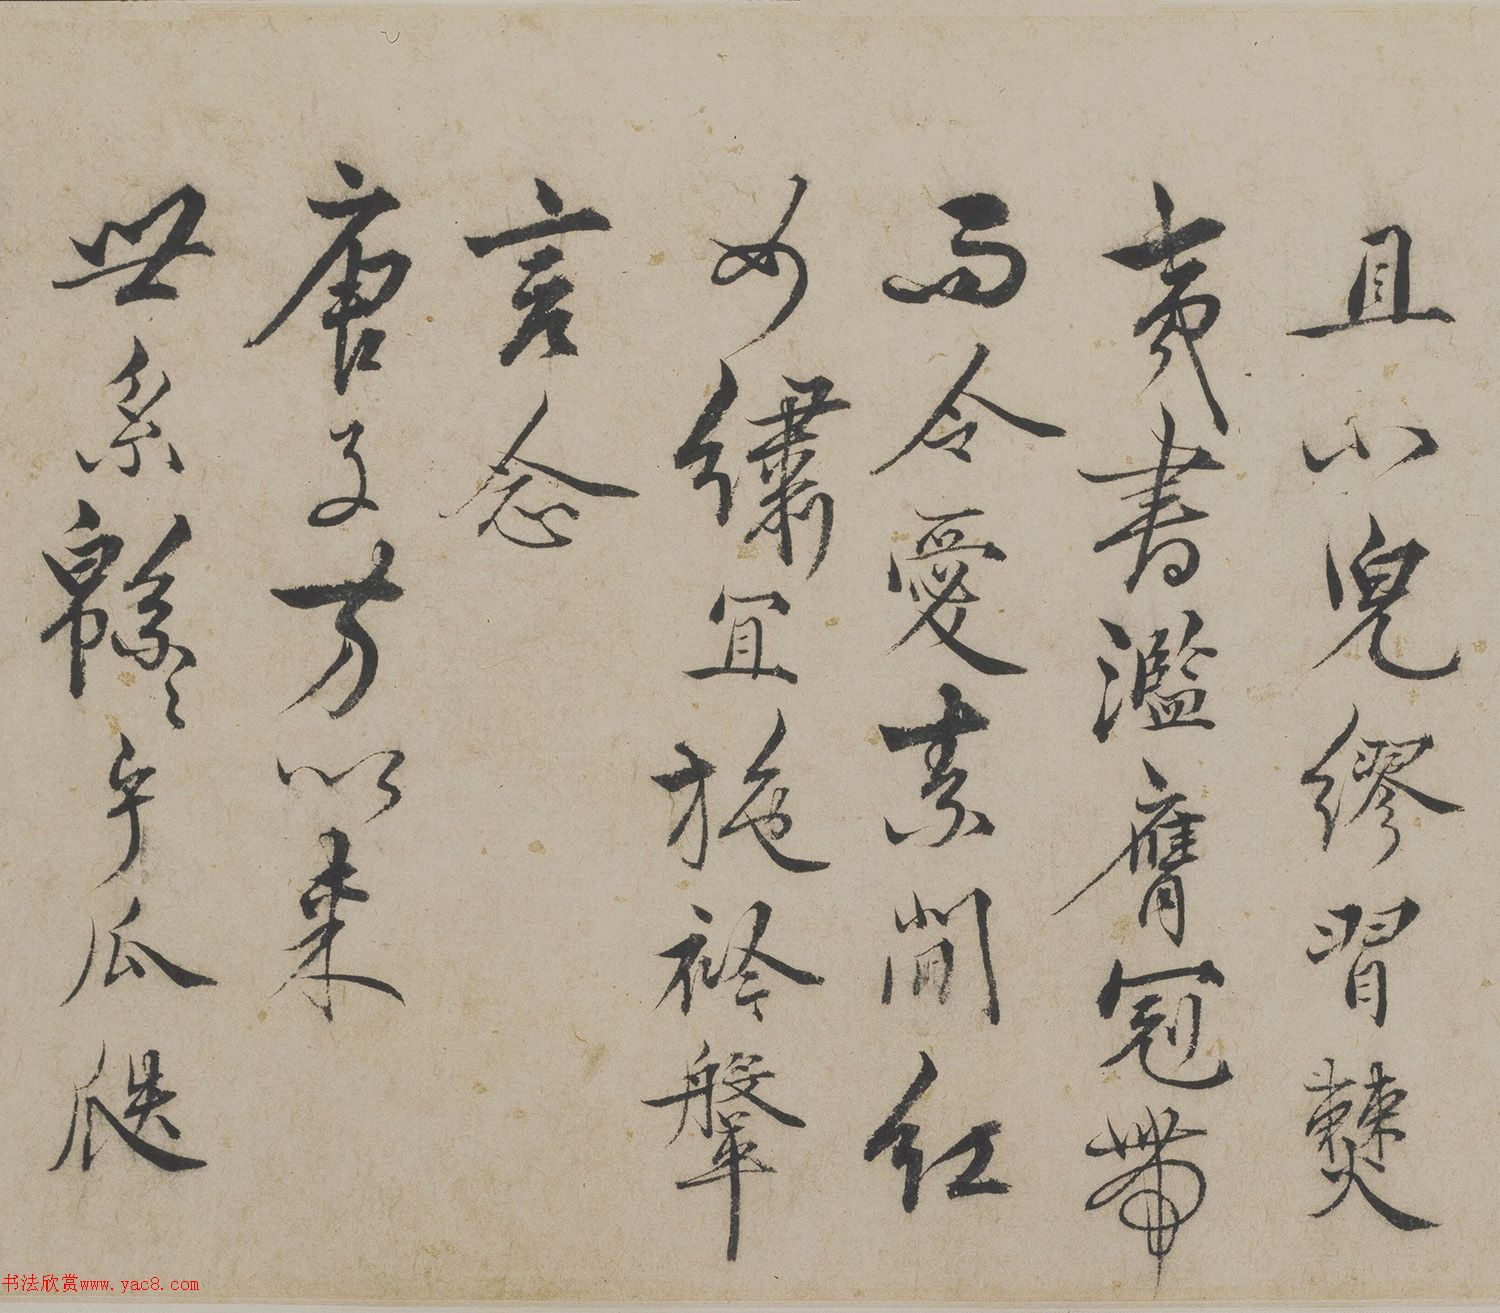 且小兒繆習僰
夷書濫膺冠帶
而令愛素閒紅
女繡宜施衿鞶
言念
唐子方以来
世系緜〻乎瓜瓞
书法欣赏www.yac8.com